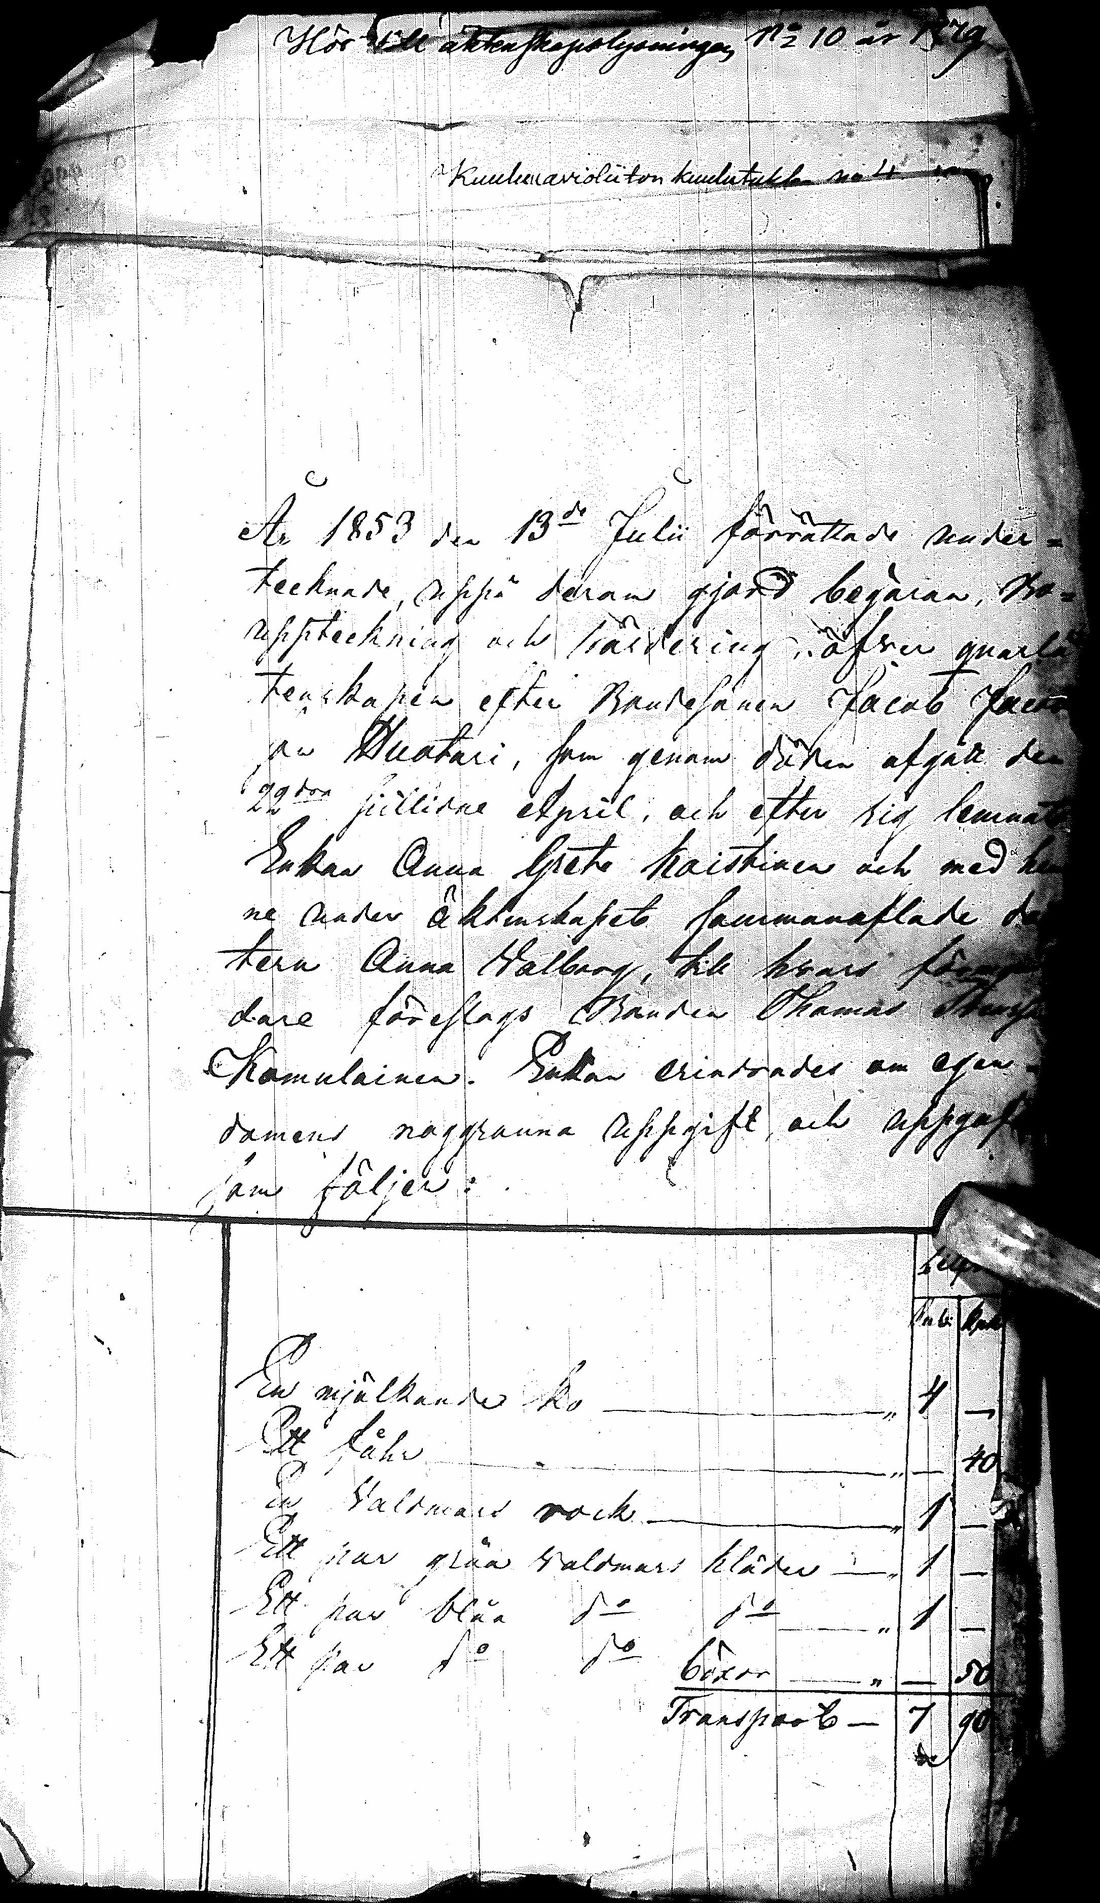 Hör till äktenskapslysningen No 10 år 1879
Kuuluu avioliiton kuulutukseen no 4
År 1853 den 13de Julii förrättade under-
tecknade, uppå derom gjord begäran, Bo-
uppteckning och Värdering, öfver quarlå
tenskapen efter Bondesonen Jacob Jacobs
on Huotari, som genom döden afgått den
22dra sistlidne April, och efter sig lemnat
Enkan Anna Greta Kaistinen och med hen
ne under äktenskapet sammanaflade dot
tern Anna Walborg, till hvars förmyn
dare föreslogs Bonden Thomas
Kamulainen. Enkan erindrades om egen-
domens noggranna uppgift, och uppgafs
som följer:
Rub: Kop
En mjölkande ko — " 4 —
Ett fåhr — " — 40
En Valdmars rock — " 1 —
Ett par gråa valdmars kläder — " 1 —
Ett par blåa do do — " 1 —
Ett par do do böxor — " — 50
Transport — 7 90